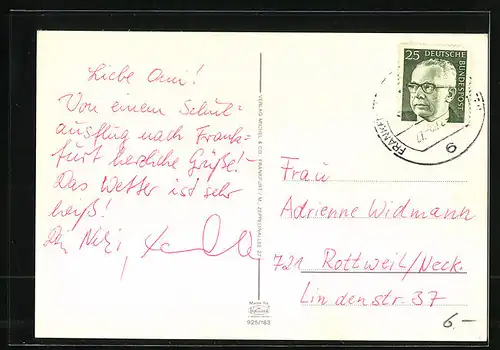 Liebe Omi!
Von einem Schul=
ausflug nach Frank=
furt herzliche Grüße!
Das Wetter ist sehr
heiß!
VERLAG MICHEL & CO., FRANKFURT/M.
925/183
25
DEUTSCHE
BUNDESPOST
FRANKF
6
Frau
Adrienne Widmann
721 Rottweil/Neck.
Lindenstr. 37
6.-